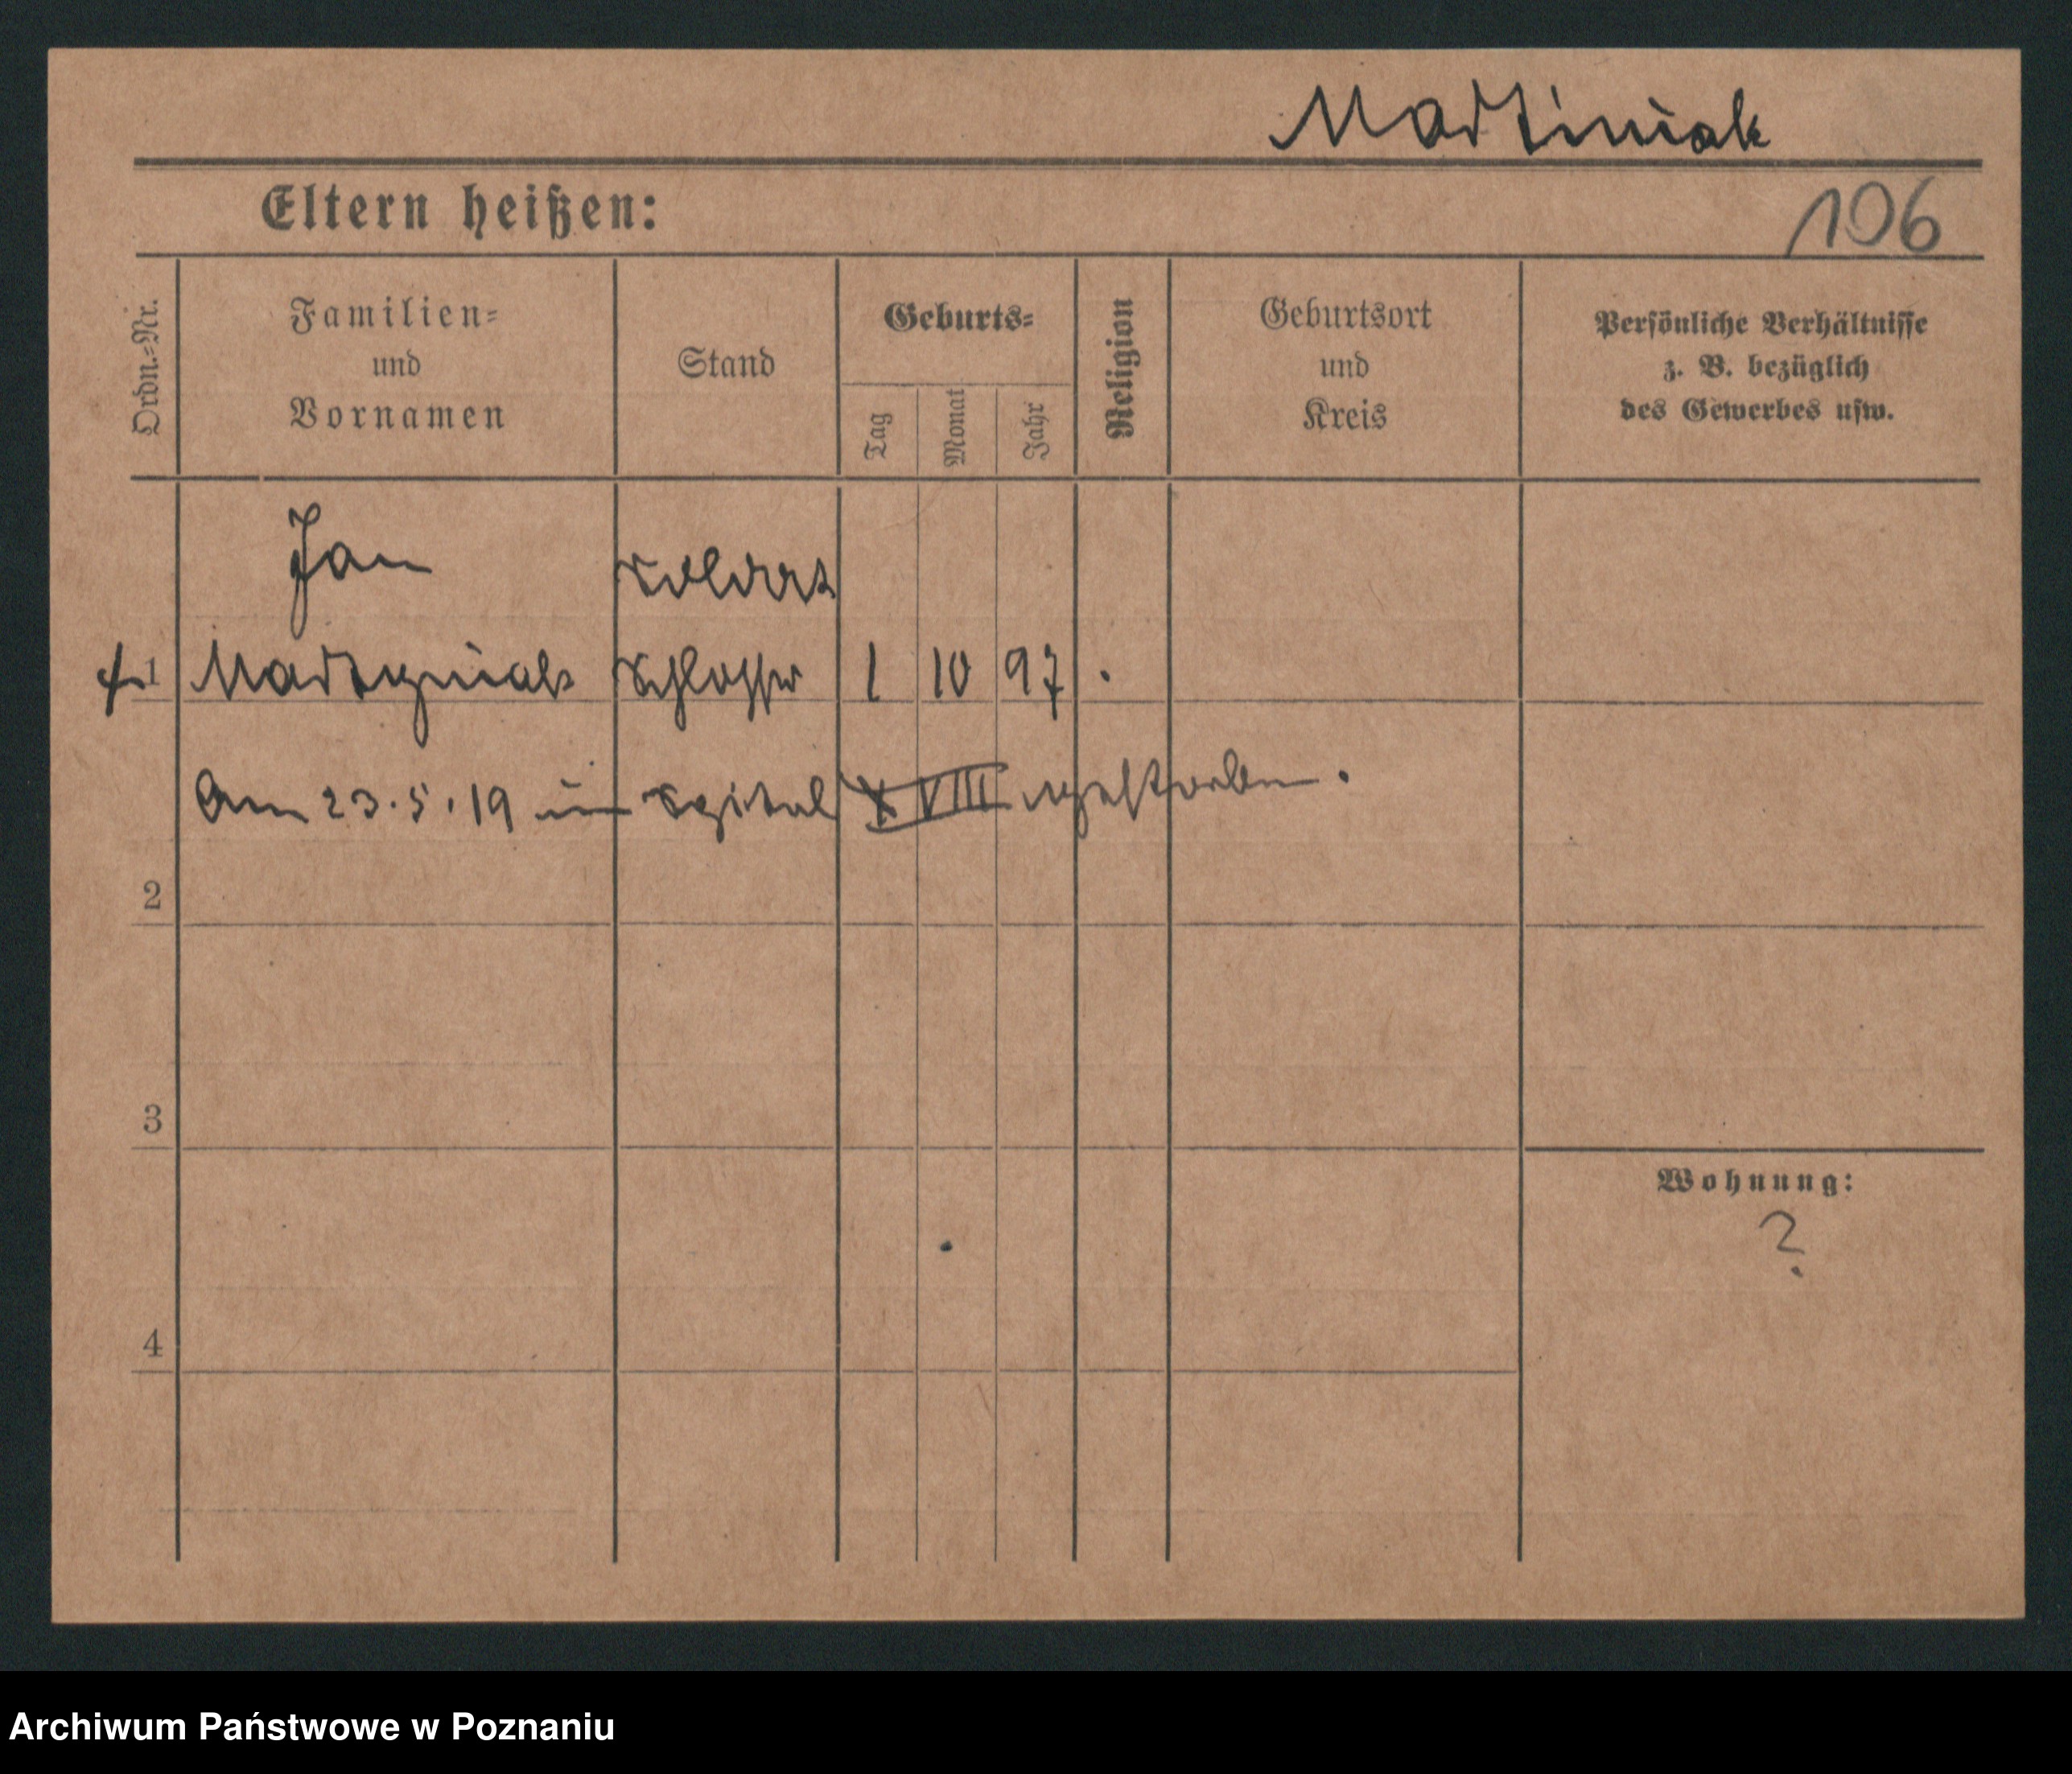 Martiniak
Eltern heißen:
106
Ordn.=Nr.
Familien=
und
Vornamen
Stand
Geburts=
Tag
Monat
Jahr
Religion
Geburtsort
und
Kreis
Persönliche Verhältnisse
z. B. bezüglich
des Gewerbes usw.
Jan Soldat
1 Martyniak Schlosser 1 10 97 .
Am 23.5.19 im Spital XVIII gestorben.
2
3
Wohnung:
?
4
Archiwum Państwowe w Poznaniu